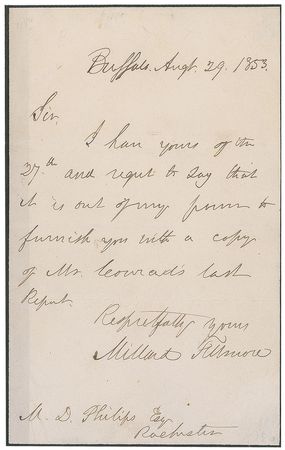 Buffalo. Augt. 29. 1853.
Sir.
I have yours of the
27th and regret to say that
it is out of my power to
furnish you with a copy
of Mr. Conrad's last
Report.
Respectfully yours
Millard Fillmore
M. D. Philips Esq
Rochester